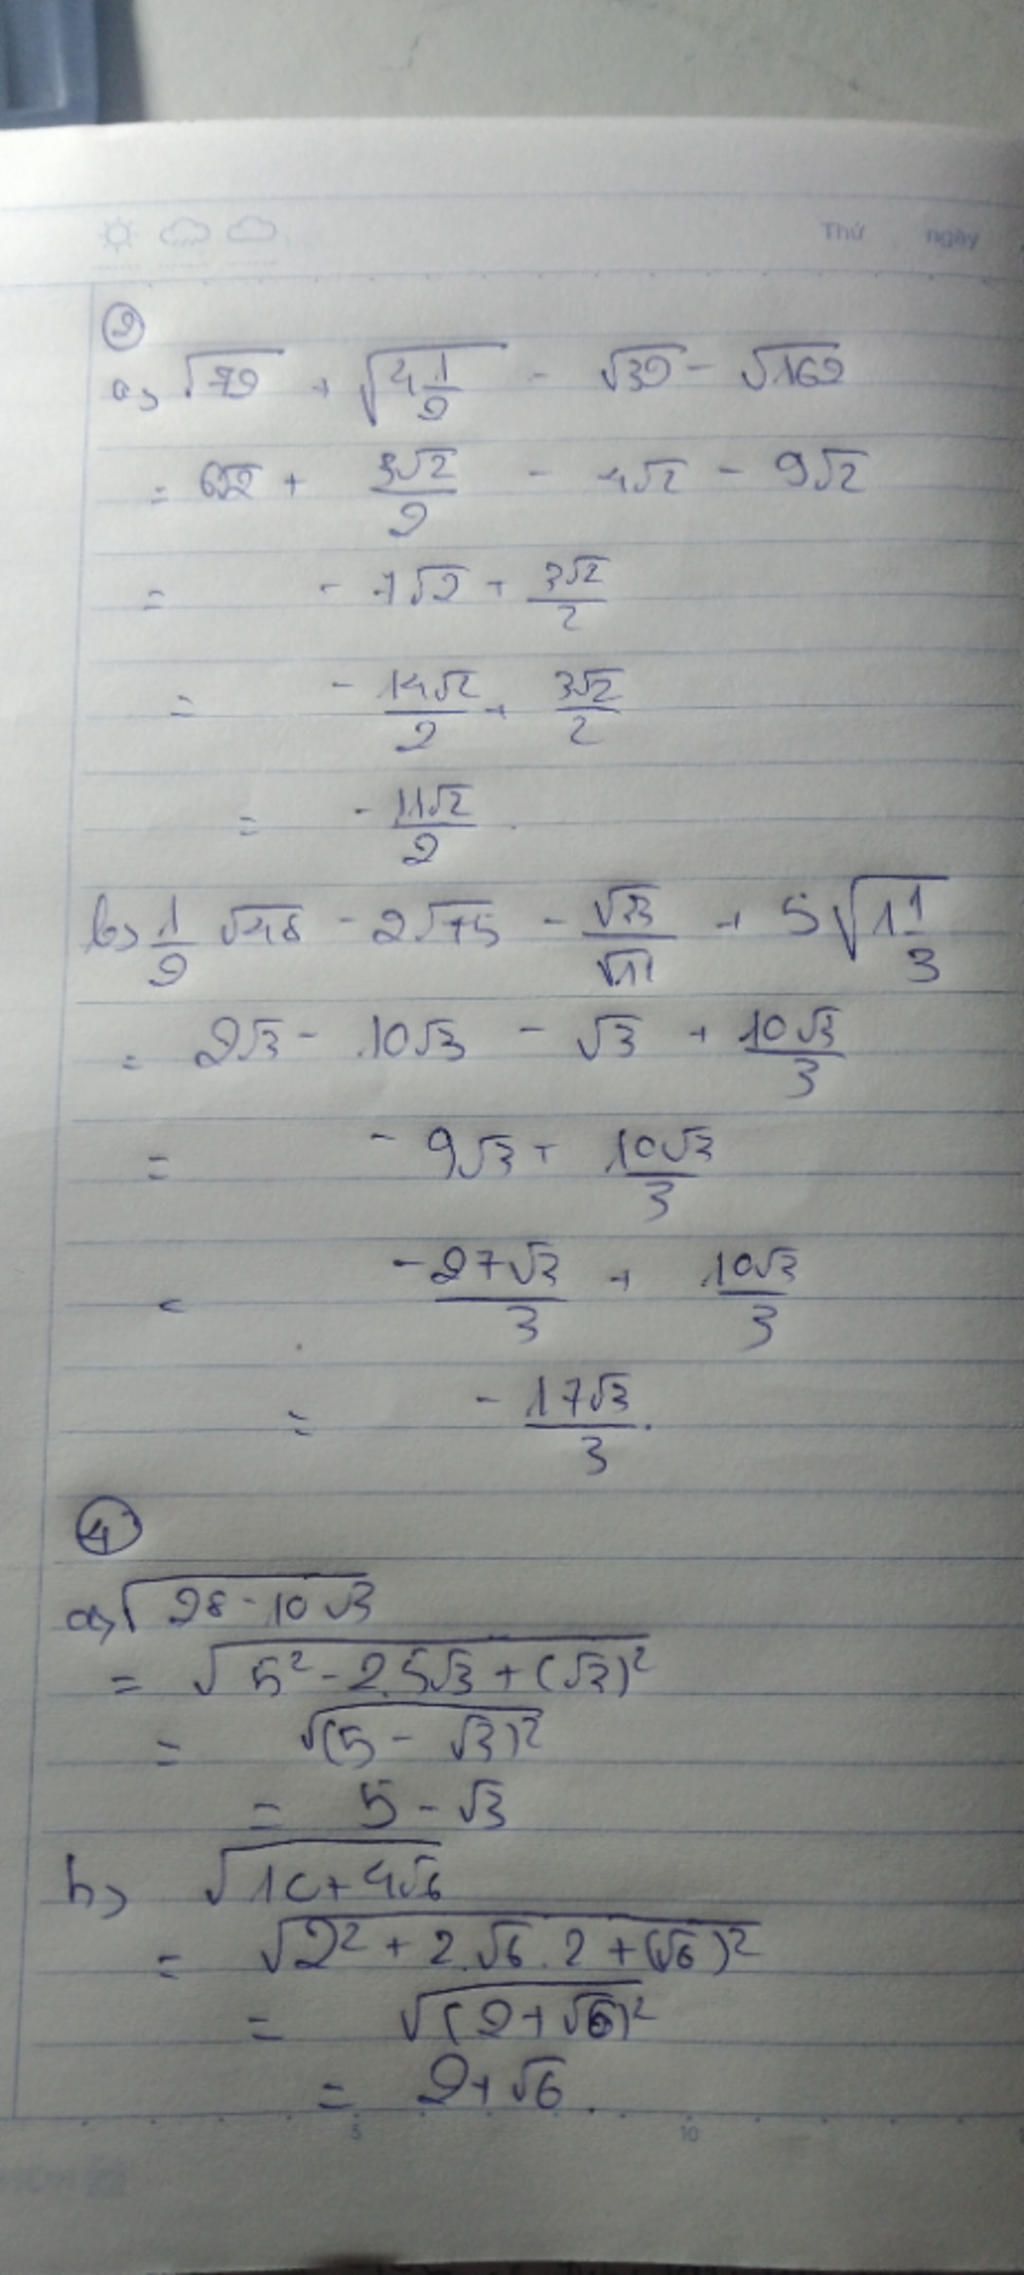 Thứ ngày
②
a, √72 + √(4 1/2) - √32 - √162
= 6√2 + 3√2/2 - 4√2 - 9√2
= -7√2 + 3√2/2
= -14√2/2 + 3√2/2
= -11√2/2.
b, 1/2 √48 - 2√75 - √33/√11 + 5√(1 1/3)
= 2√3 - 10√3 - √3 + 10√3/3
= -9√3 + 10√3/3
= -27√3/3 + 10√3/3
= -17√3/3.
④
a, √(28 - 10√3)
= √(5² - 2.5√3 + (√3)²)
= √((5 - √3)²)
= 5 - √3
b, √(10 + 4√6)
= √(2² + 2.√6.2 + (√6)²)
= √((2 + √6)²)
= 2 + √6.
5 10